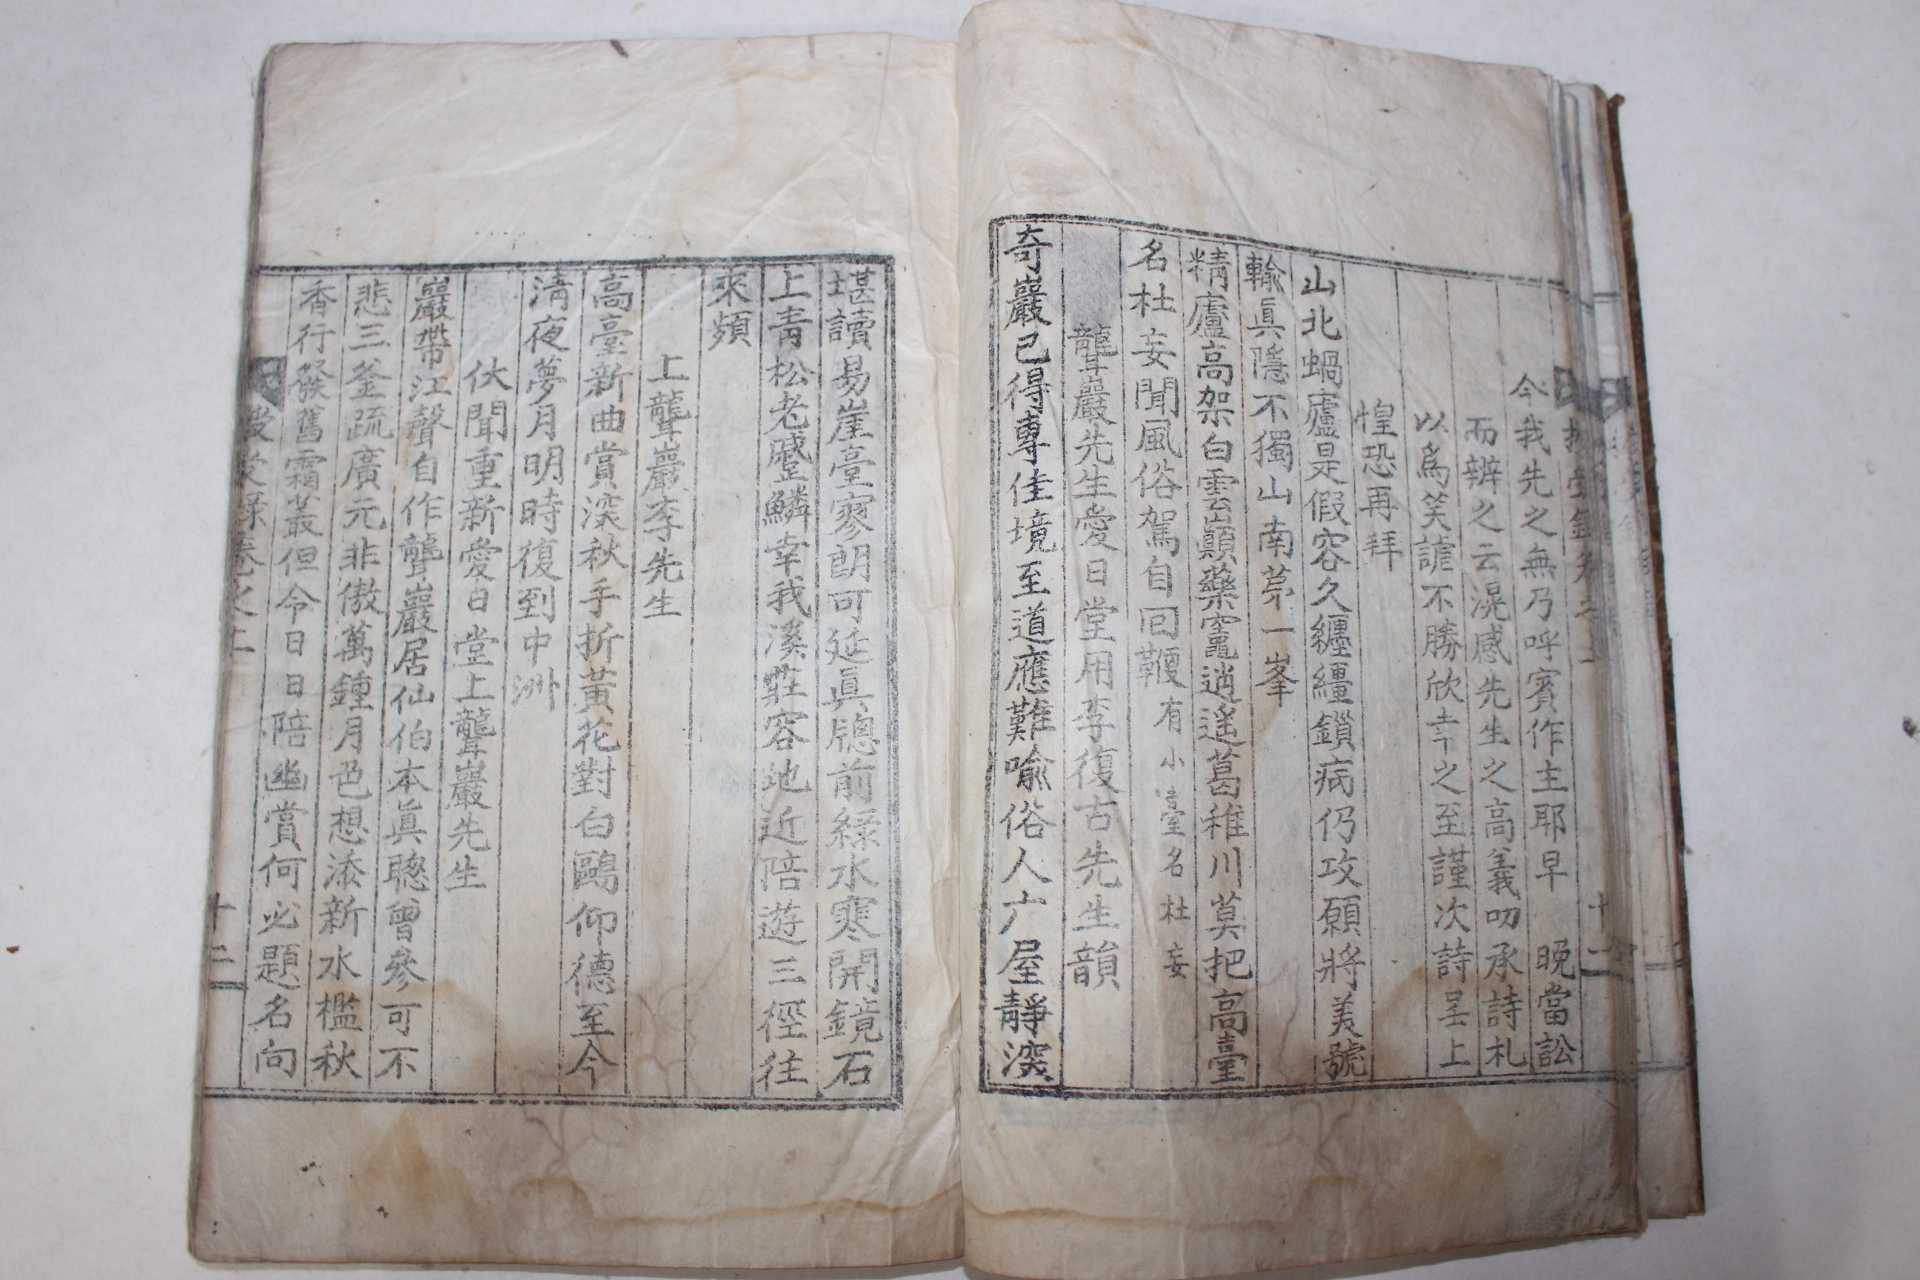 今我先之無乃呼賓作主耶早 晩當訟
而辨之云滉感先生之高義叨承詩札
以爲笑謔不勝欣幸之至謹次詩呈上
惶恐再拜
山北蝸廬是假容久纏繮鎖病仍攻願將美號
輸眞隱不獨山南苐一峯
精廬高架白雲巓藥竈逍遥葛稚川莫把高臺
名杜妄聞風俗駕自回鞭有小臺名杜妄
聾巖先生愛日堂用李復古先生韻
奇巖已得專佳境至道應難喩俗人广屋靜深
堪讀易崖臺寥朗可延眞牕前緑水寒開鏡石
上青松老蹙鱗幸我溪莊容地近陪遊三徑往
來頻
上聾巖李先生
高臺新曲賞深秋手折黃花對白鷗仰德至今
淸夜夢月明時復到中洲
伏聞重新愛日堂上聾巖先生
巖帶江聲自作聾巖居仙伯本眞聦曾參可不
悲三釜疏廣元非傲萬鍾月色想添新水檻秋
香行發舊霜叢但令日日陪幽賞何必題名向
十二